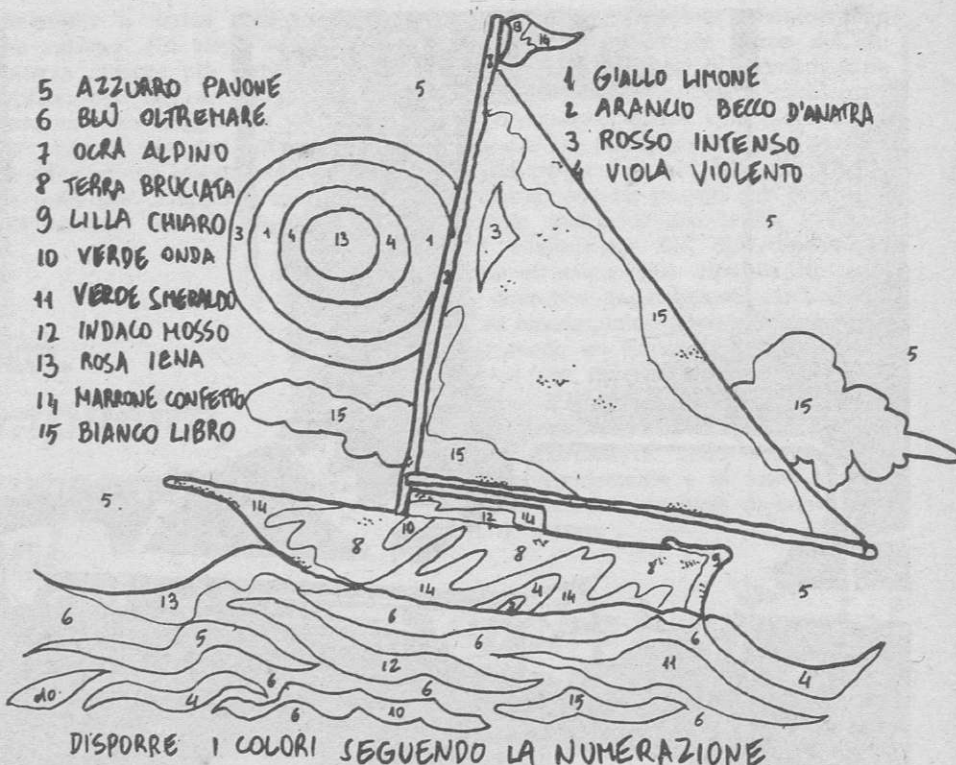 5 AZZURRO PAVONE
6 BLÙ OLTREMARE
7 OCRA ALPINO
8 TERRA BRUCIATA
9 LILLA CHIARO
10 VERDE ONDA
11 VERDE SMERALDO
12 INDACO MOSSO
13 ROSA IENA
14 MARRONE CONFETTO
15 BIANCO LIBRO
1 GIALLO LIMONE
2 ARANCIO BECCO D'ANATRA
3 ROSSO INTENSO
4 VIOLA VIOLENTO
5
14
5
3 1 4 13 4 1
3
2
15
5
15
15
15
5
14
10
12
14
8
8
8
14
4
14
5
13
6
6
6
6
5
12
11
4
10
4
6
6
6
10
15
6
DISPORRE I COLORI SEGUENDO LA NUMERAZIONE